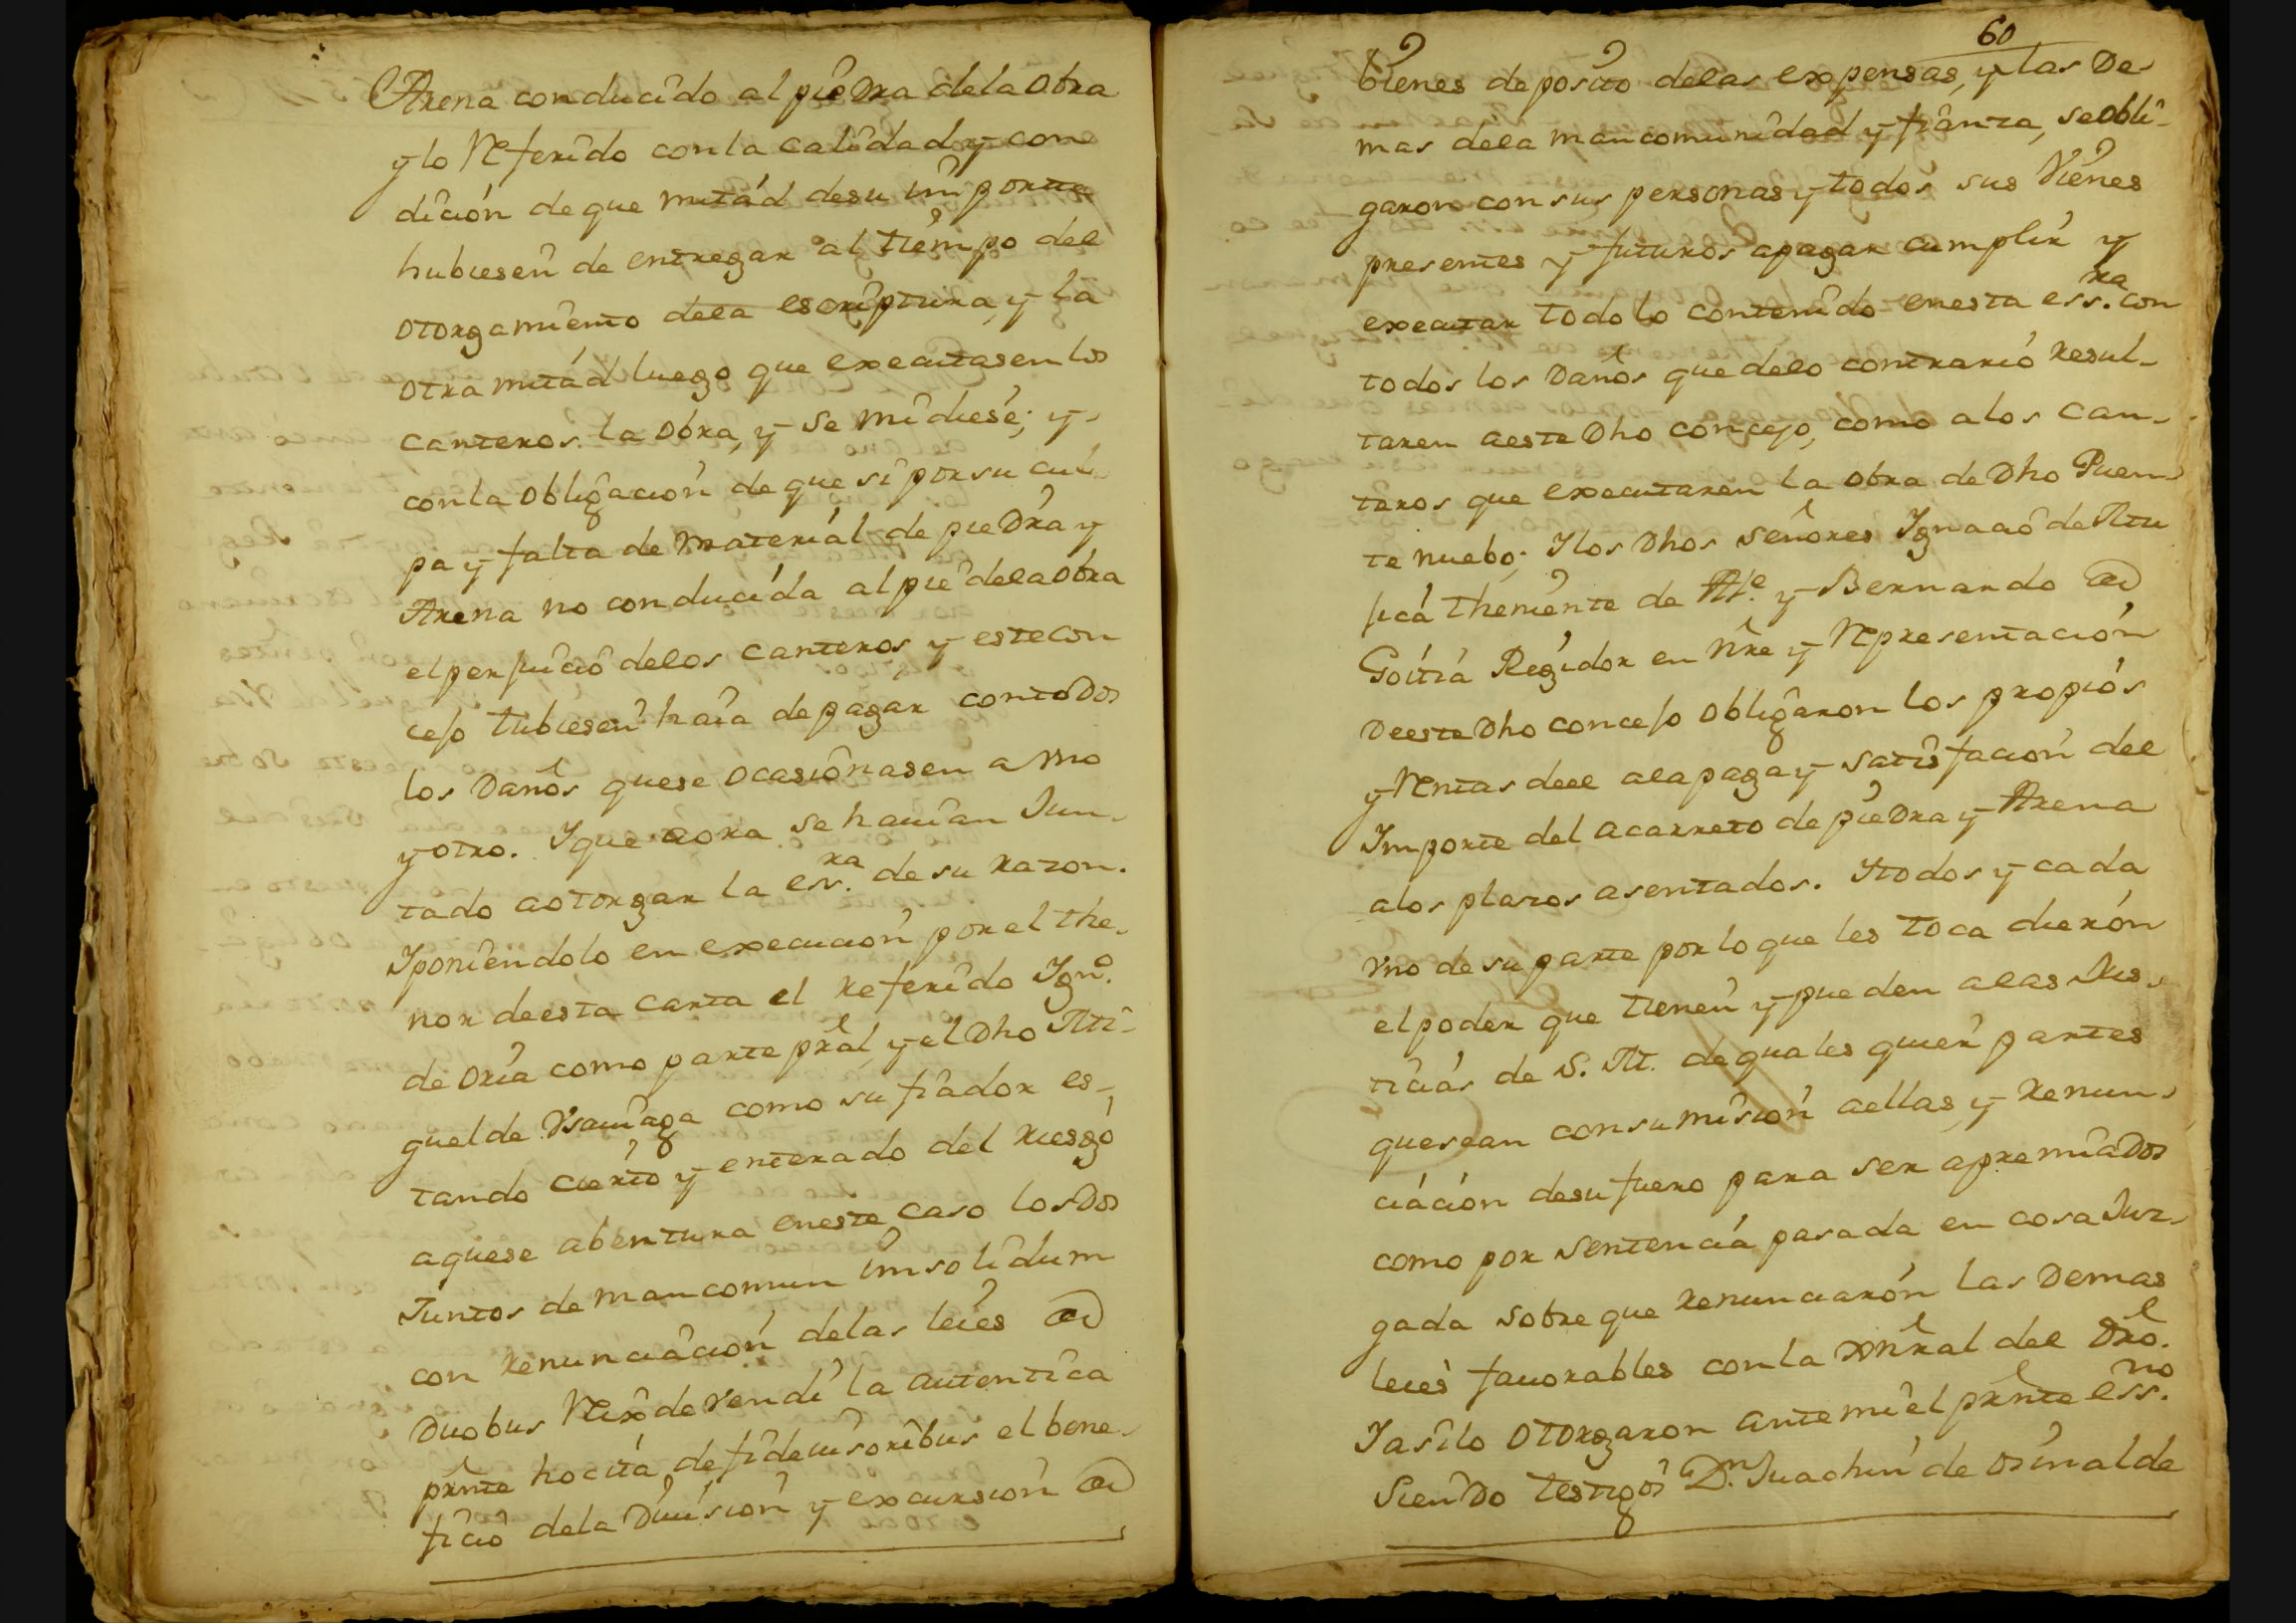 Arena conducido al pie Dra dela obra
y lo Referido con la calidad y con
dición de que mitád desu importe
hubiesen de entregar al tiempo del
otorgamiento dela escriptura, y la
otra mitád luego que executasen los
canteros la obra, y se midiese; y
con la obligación de que si por su cul
pa y falta de materiál de pieDra y
Arena no conducida al pie dela obra
el perjuicio delos canteros y este con
cejo tubiesen haia de pagar con todos
los Daños que se ocasionasen a vno
y otro. Y que aora se hauian Jun-
tado aotorgar la esc.ra de su razon.
Y poniendolo en execucion por el the-
nor deesta carta el referido Ign.o
de Oria como parte prãl, y el Dho Mi-
guel de Vsauiaga como su fiador es-
tando cierto y enterado del riesgo
aquese abentura eneste caso los Dos
Juntos de mancomun insolidum
con renunciación delas leies de
Duobus Reix de vendi la autentica
prnte hocita de fideiusoribus el bene-
ficio dela Diuision y excursion de
60
bienes deposito delas expensas, y las De-
mas dela mancomunidad y fianza, se obli-
garon con sus personas y todos sus Vienes
presentes y futuros apagar cumplir y
executar todo lo contenido enesta ess.ra con
todos los Daños que delo contrario resul-
taren aeste Dho concejo, como alos can-
teros que executaren la obra de Dho Puen-
te nuebo; Y los Dhos señores Ignacio de Mu
jica Theniente de Al.e y Bernardo de
Goitia Regidor en nre y Representación
Deeste Dho concejo obligaron los propios
y Rentas deel ala paga y satisfacion del
Importe del acarreto de pieDra y Arena
alos plazos asentados. Y todos y cada
vno de su parte por lo que les toca dierón
el poder que tienen y pueden alas Jus-
ticias de S. M. de quales quier partes
quesean consumision aellas, y renun-
ciación desu fuero para ser apremiaDos
como por sentencia pasada en cosa Juz-
gada sobre que renunciarón las Demas
leies fauorables con la xnrãl del Dro.
Y asilo otorgaron ante mi el prnte ess.no
SienDo testigos D.n Juachin de Oinalde